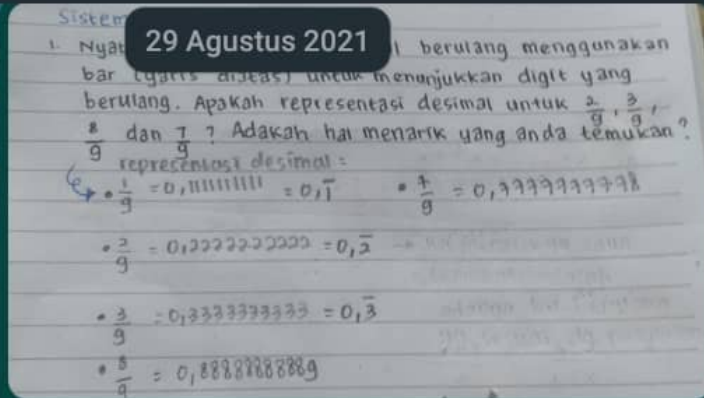 Sistem
29 Agustus 2021
1. Nyat berulang menggunakan
bar (garis diatas) untuk menunjukkan digit yang
berulang. Apakah representasi desimal untuk 2/9, 3/9,
8/9 dan 7/9? Adakah hal menarik yang anda temukan?
representasi desimal :
• 1/9 = 0,11111111111 = 0,1̅ • 7/9 = 0,7777777778
• 2/9 = 0,22222222222 = 0,2̅
• 3/9 = 0,3333333333 = 0,3̅
• 8/9 = 0,8888888889